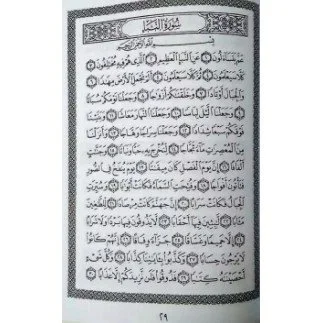 سُورَةُ النَّبَإِ
بِسْمِ اللَّهِ الرَّحْمَٰنِ الرَّحِيمِ
عَمَّ يَتَسَاءَلُونَ ١ عَنِ النَّبَإِ الْعَظِيمِ ٢ الَّذِي هُمْ فِيهِ مُخْتَلِفُونَ ٣
كَلَّا سَيَعْلَمُونَ ٤ ثُمَّ كَلَّا سَيَعْلَمُونَ ٥ أَلَمْ نَجْعَلِ الْأَرْضَ مِهَٰدًا ٦
وَالْجِبَالَ أَوْتَادًا ٧ وَخَلَقْنَٰكُمْ أَزْوَٰجًا ٨ وَجَعَلْنَا نَوْمَكُمْ سُبَاتًا
٩ وَجَعَلْنَا الَّيْلَ لِبَاسًا ١٠ وَجَعَلْنَا النَّهَارَ مَعَاشًا ١١ وَبَنَيْنَا
فَوْقَكُمْ سَبْعًا شِدَادًا ١٢ وَجَعَلْنَا سِرَاجًا وَهَّاجًا ١٣ وَأَنزَلْنَا
مِنَ الْمُعْصِرَٰتِ مَاءً ثَجَّاجًا ١٤ لِّنُخْرِجَ بِهِ حَبًّا وَنَبَاتًا ١٥ وَجَنَّٰتٍ
أَلْفَافًا ١٦ إِنَّ يَوْمَ الْفَصْلِ كَانَ مِيقَٰتًا ١٧ يَوْمَ يُنفَخُ فِي الصُّورِ
فَتَأْتُونَ أَفْوَاجًا ١٨ وَفُتِحَتِ السَّمَاءُ فَكَانَتْ أَبْوَٰبًا ١٩ وَسُيِّرَتِ
الْجِبَالُ فَكَانَتْ سَرَابًا ٢٠ إِنَّ جَهَنَّمَ كَانَتْ مِرْصَادًا ٢١ لِّلطَّٰغِينَ
مَـَٔابًا ٢٢ لَّٰبِثِينَ فِيهَا أَحْقَابًا ٢٣ لَّا يَذُوقُونَ فِيهَا بَرْدًا وَلَا شَرَابًا
٢٤ إِلَّا حَمِيمًا وَغَسَّاقًا ٢٥ جَزَاءً وِفَاقًا ٢٦ إِنَّهُمْ كَانُوا
لَا يَرْجُونَ حِسَابًا ٢٧ وَكَذَّبُوا بِـَٔايَٰتِنَا كِذَّابًا ٢٨ وَكُلَّ شَيْءٍ
أَحْصَيْنَٰهُ كِتَٰبًا ٢٩ فَذُوقُوا فَلَن نَّزِيدَكُمْ إِلَّا عَذَابًا ٣٠
٢٩